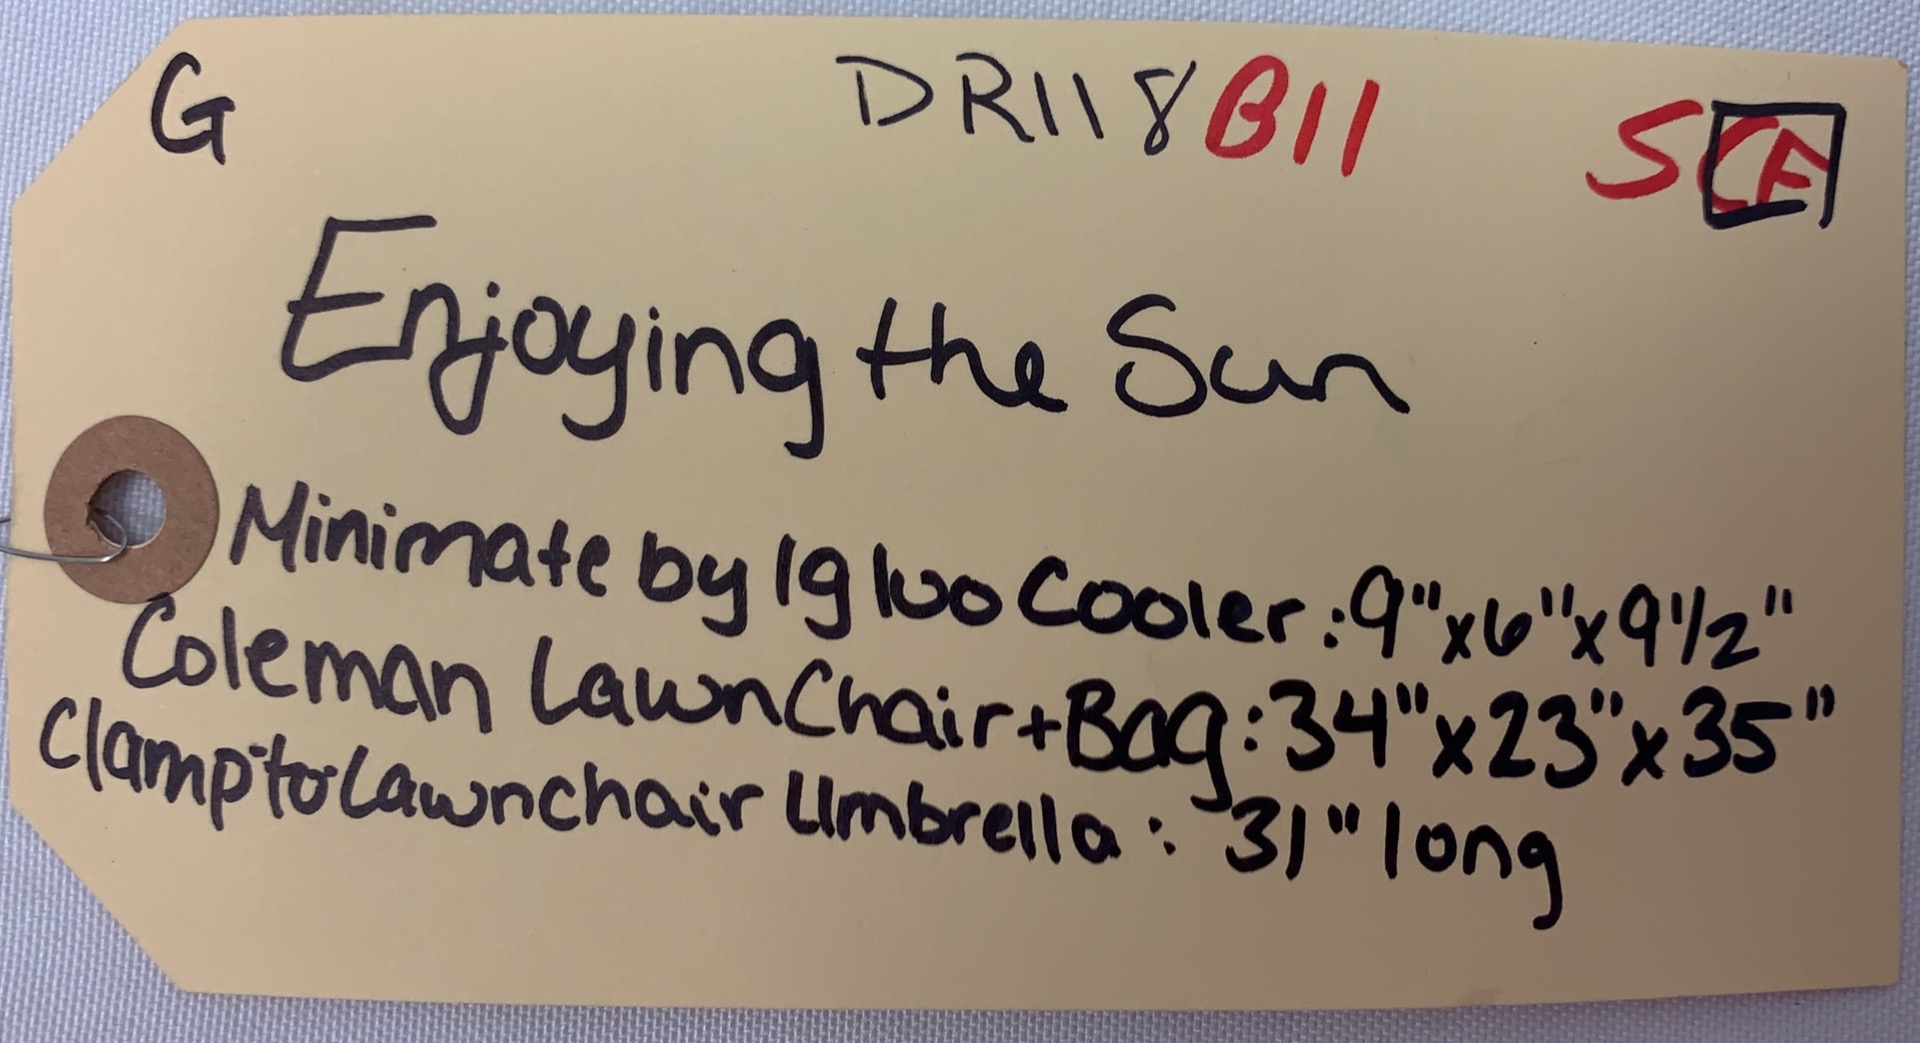 G DR118 B11 SCE
Enjoying the Sun
Minimate by Igloo Cooler: 9"x6"x9 1/2"
Coleman Lawn Chair + Bag: 34"x23"x35"
Clamp·to·Lawnchair Umbrella: 31" long